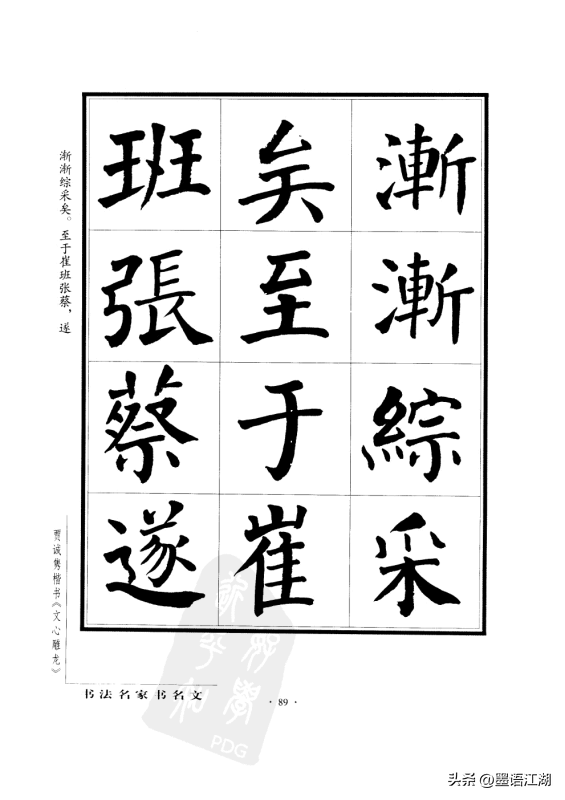 漸漸綜采
矣至于崔
班張蔡遂
渐渐综采矣。至于崔班张蔡，遂
贾诚隽楷书《文心雕龙》
书法名家书名文
·89·
PDG
头条@墨语江湖